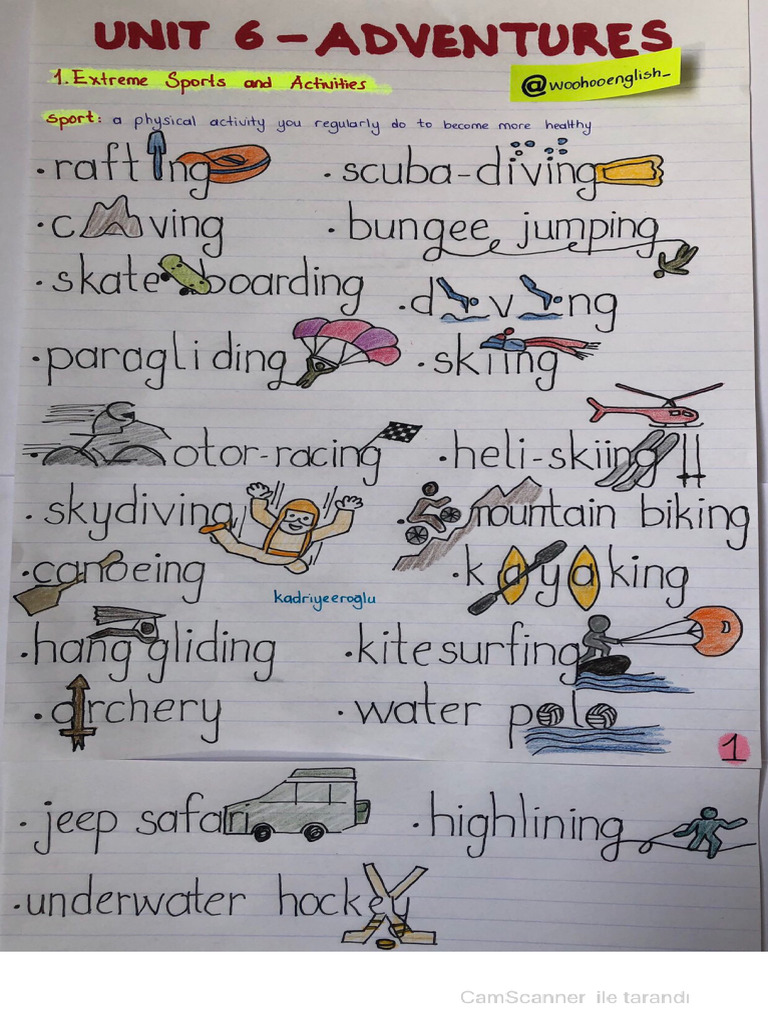 UNIT 6 - ADVENTURES
1. Extreme Sports and Activities
@woohooenglish_
sport: a physical activity you regularly do to become more healthy
• rafting
• scuba-diving
• caving
• bungee jumping
• skateboarding
• diving
• paragliding
• skiing
motor-racing
• heli-skiing
• skydiving
• mountain biking
• canoeing
• kayaking
kadriyeeroglu
• hang gliding
• kitesurfing
• archery
• water polo
1
• jeep safari
• highlining
• underwater hockey
CamScanner ile tarandı